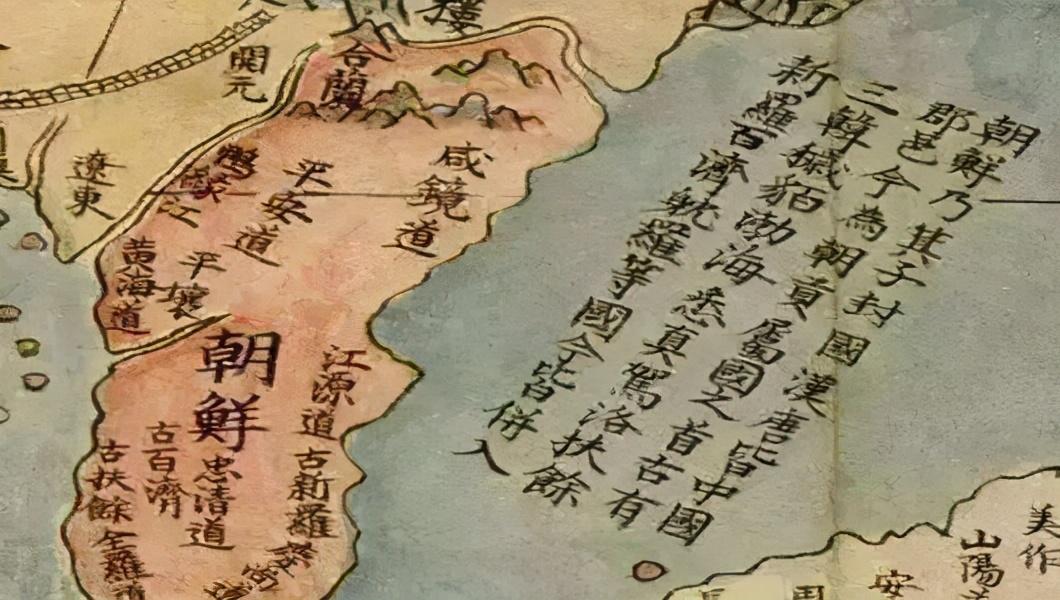 朝鮮乃其子封國漢唐皆中國
郡邑今為朝貢屬國之首古有
三韓穢貊渤海悉真駕洛扶餘
新羅百濟躭羅等國今皆併入
開元
合蘭
遼東
咸鏡道
平安道
鴨綠江
平壤
黃海道
朝鮮
江源道
古新羅
忠清道
古百濟
古扶餘
全羅道
美作
山陽
安